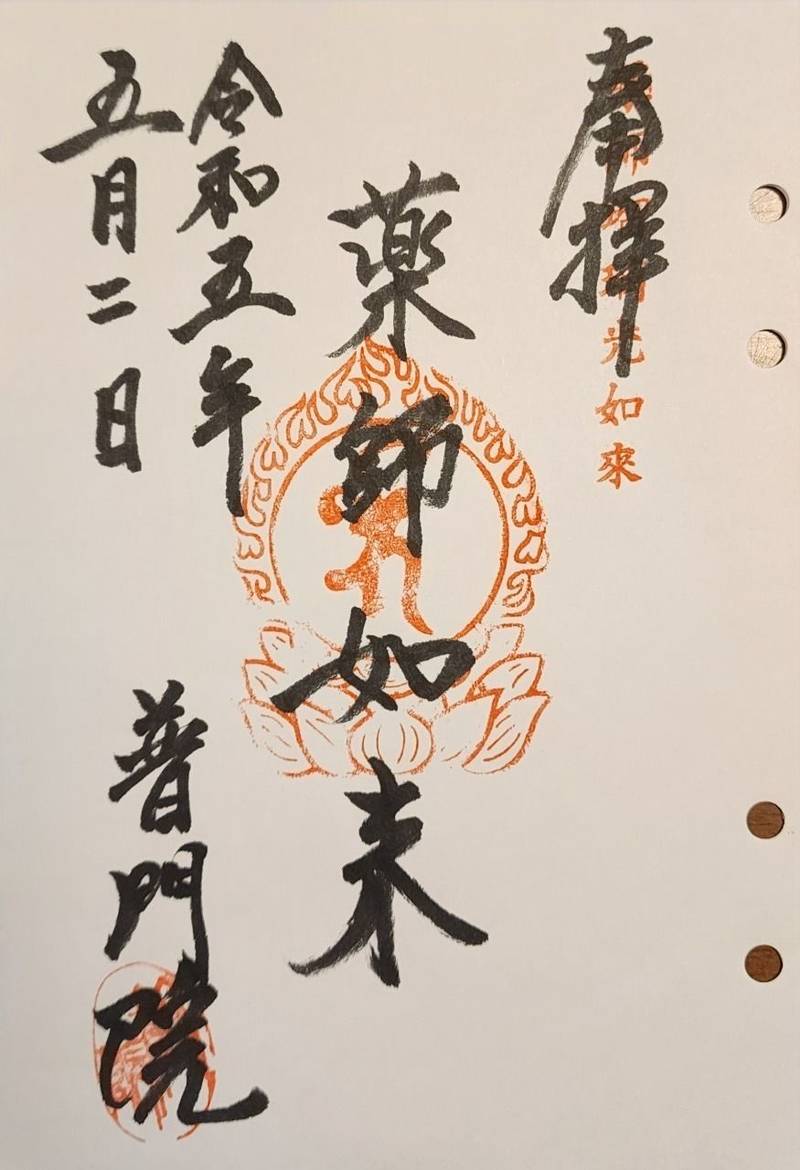 奉拝
光如來
薬師如来
令和五年
五月二日
普門院